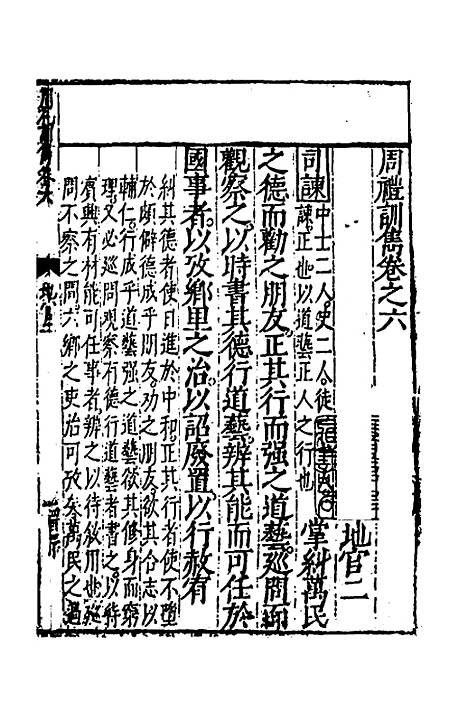 周禮訓雋卷之六
地官二
司諫 中士二人史二人徒
諫正也以道藝正人之行也
掌糾萬民
之德而勸之朋友正其行而强之道藝巡問而
觀察之以時書其德行道藝辨其能而可任於
國事者以攷鄉里之治以詔廢置以行赦宥
糾其德者使日進於中和正其行者使不墮
於頗僻德成乎朋友劝之朋友欲其合志以
輔仁行成乎道藝强之道藝欲其修身而窮
理又必巡問觀察有德行道藝者書之以待
賓興有材能可任事者辨之以待敘用也巡
問不察之問六鄉之吏治可攷矣萬民之過